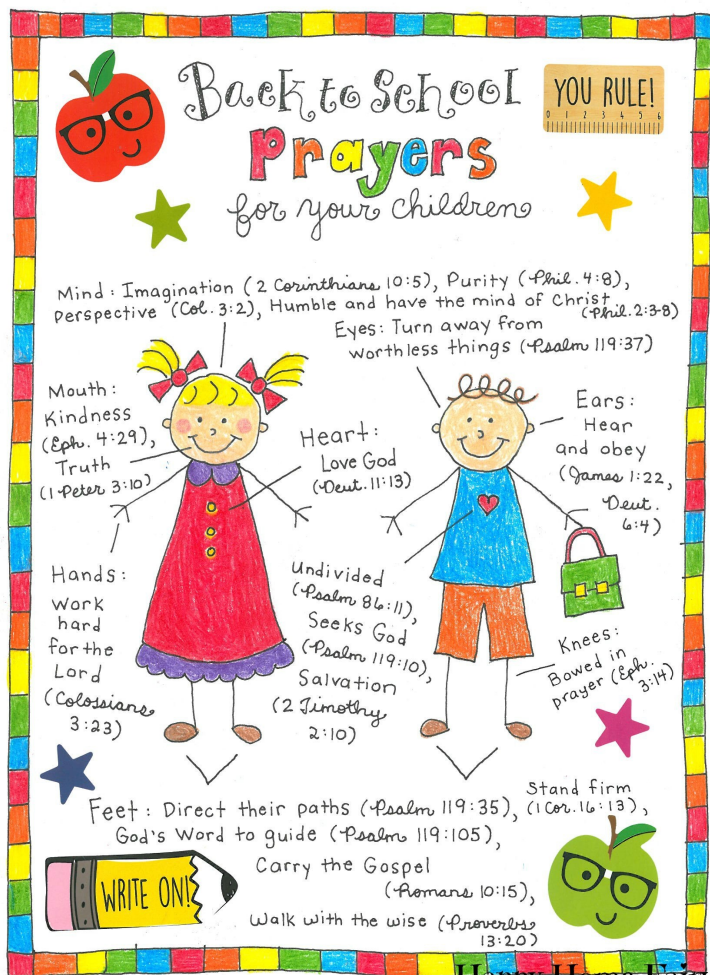 Back to School
YOU RULE!
0 1 2 3 4 5 6
Prayers
for your children
Mind: Imagination (2 Corinthians 10:5), Purity (Phil. 4:8),
Perspective (Col. 3:2), Humble and have the mind of Christ
(Phil. 2:3-8)
Eyes: Turn away from
worthless things (Psalm 119:37)
Mouth:
Kindness
(Eph. 4:29),
Truth
(1 Peter 3:10)
Heart:
Love God
(Deut. 11:13)
Ears:
Hear
and obey
(James 1:22,
Deut.
6:4)
Hands:
Work
hard
for the
Lord
(Colossians
3:23)
Undivided
(Psalm 86:11),
Seeks God
(Psalm 119:10),
Salvation
(2 Timothy
2:10)
Knees:
Bowed in
prayer (Eph.
3:14)
Feet: Direct their paths (Psalm 119:35),
Stand firm
(1 Cor. 16:13),
God's Word to guide (Psalm 119:105),
Carry the Gospel
(Romans 10:15),
Walk with the wise (Proverbs
13:20)
WRITE ON!